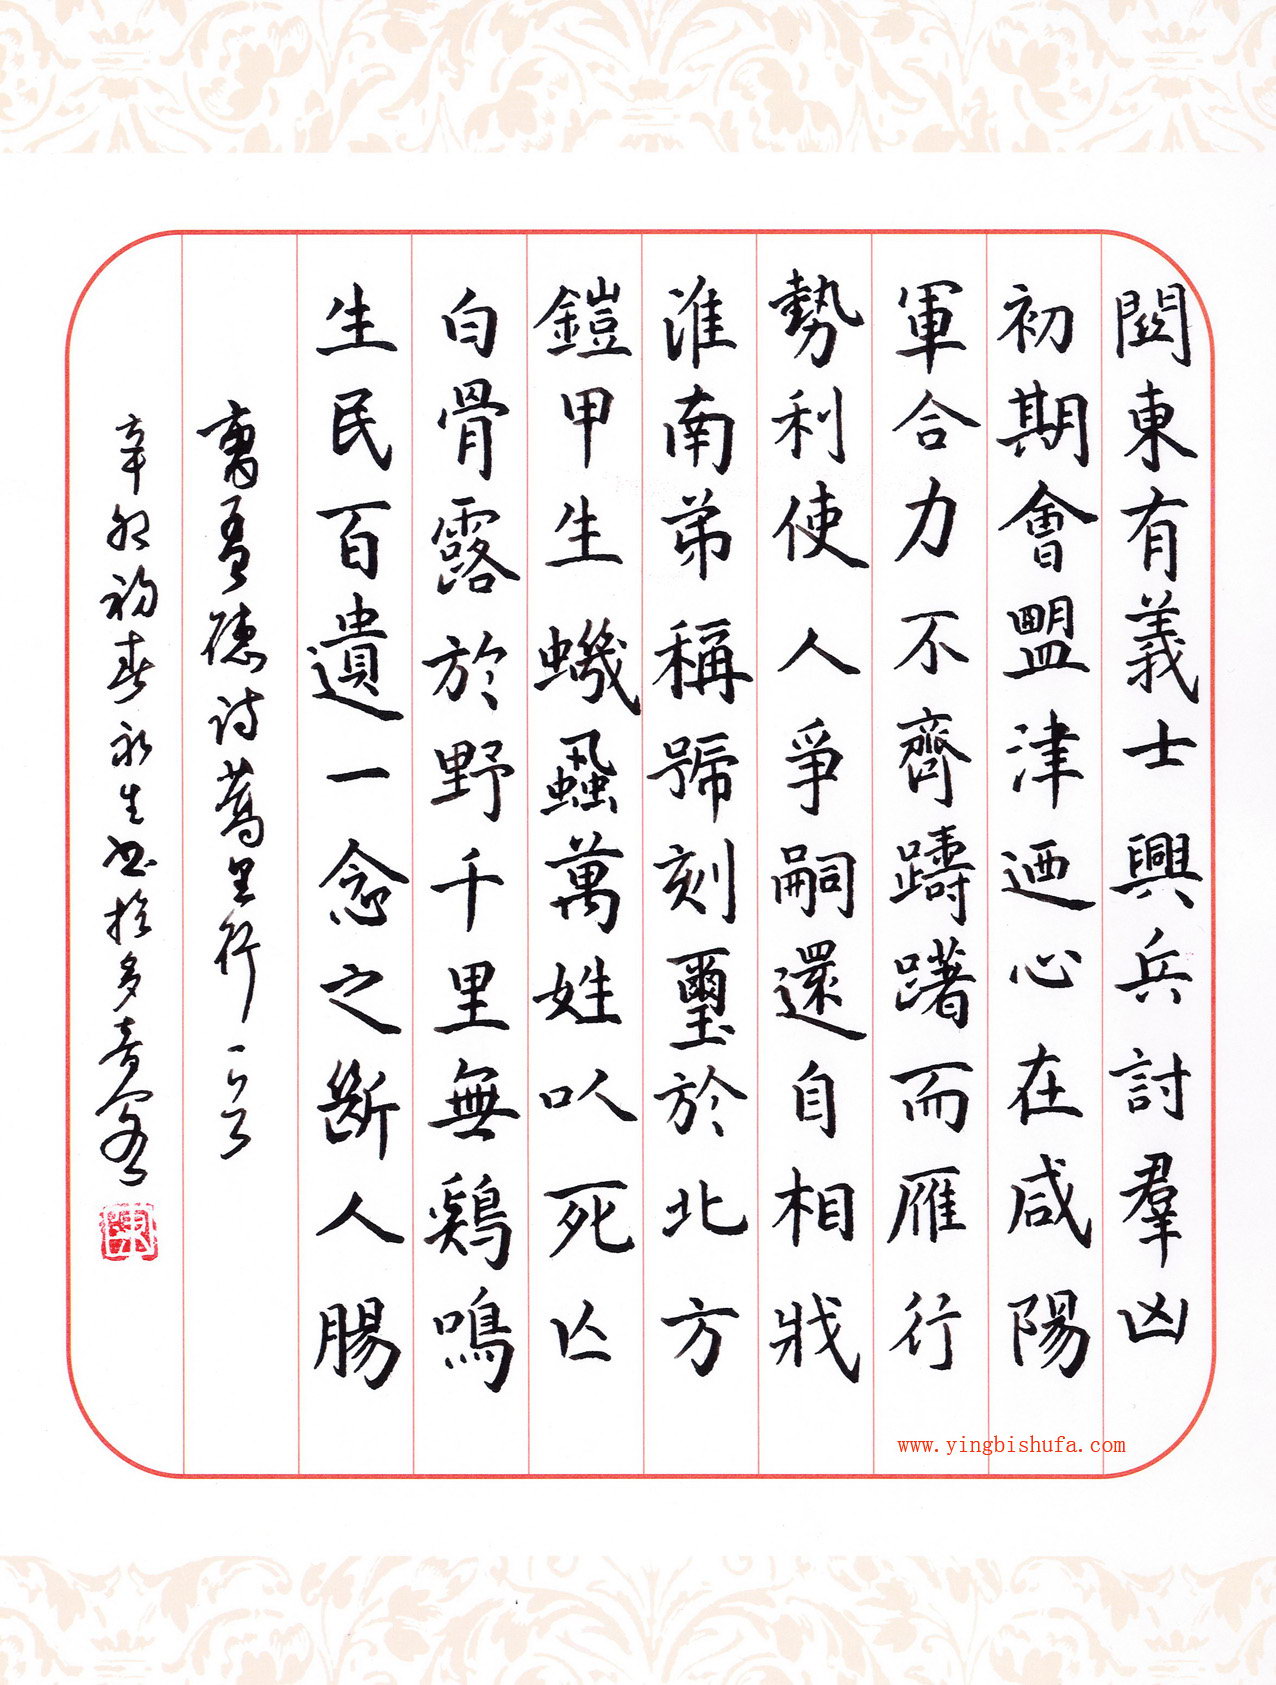 関東有義士興兵討羣凶
初期會盟津迺心在咸陽
軍合力不齊躊躇而雁行
勢利使人爭嗣還自相戕
淮南弟稱號刻璽於北方
鎧甲生蟣蝨萬姓以死亡
白骨露於野千里無鷄鳴
生民百遺一念之斷人腸
曹孟德诗蒿里行一首
辛卯初春永生书於多音客
www.yingbishufa.com